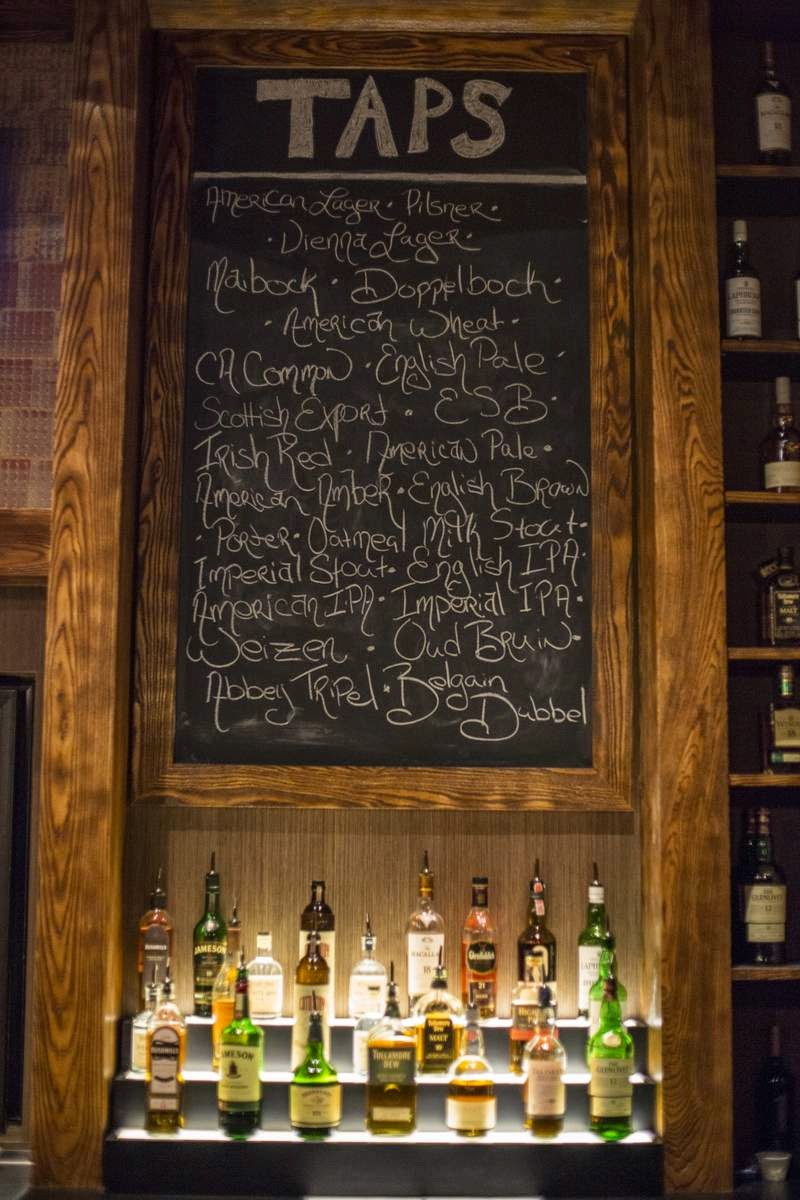 TAPS
American Lager · Pilsner ·
· Vienna Lager ·
Maibock · Doppelbock ·
· American Wheat ·
CA Common · English Pale ·
Scottish Export · ESB ·
Irish Red · American Pale ·
American Amber · English Brown
· Porter · Oatmeal Milk Stout ·
Imperial Stout · English IPA ·
American IPA · Imperial IPA ·
Weizen · Oud Bruin ·
Abbey Tripel · Belgain
Dubbel
BUSHMILLS
JAMESON
MACALLAN
18
Glenfiddich
21
LAPHROAIG
BUSHMILLS
JAMESON
TULLAMORE
DEW
Tullamore
Dew
MALT
TALISKER
GLENLIVET
12
LAPHROAIG
Tullamore
Dew
18
GLENLIVET
12